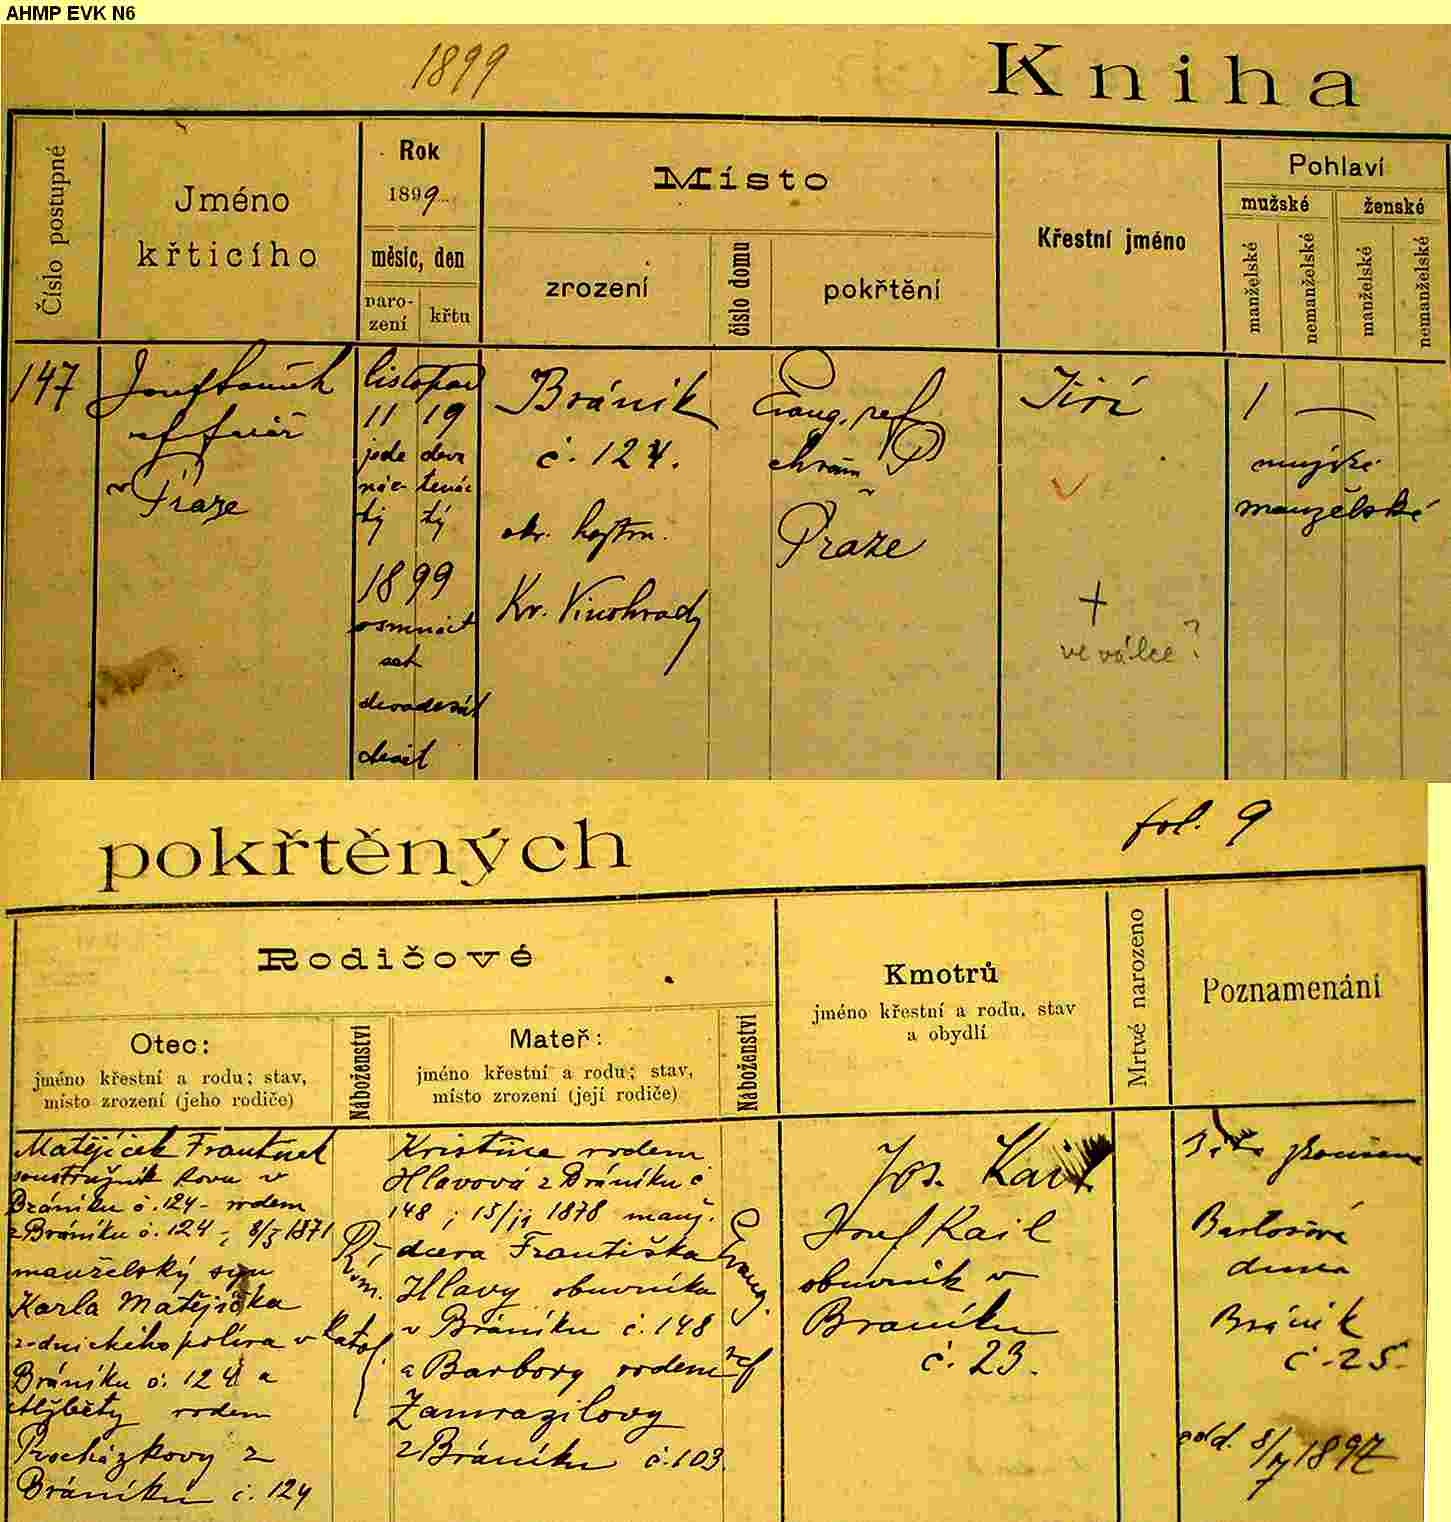 AHMP EVK N6
1899
Kniha
Číslo postupné
Jméno
křticího
Rok
1899
měsíc, den
naro-
zení
křtu
Místo
zrození
číslo domu
pokřtění
Křestní jméno
Pohlaví
mužské
ženské
manželské
nemanželské
manželské
nemanželské
147
v Praze
listopad
11 19
jede deva
nác- tenác
tý tý
1899
osmnáct
set
devadesát
devět
Bráník
č. 124.
okr. hejtm.
Kr. Vinohrady
Evang. ref.
chrám
Praze
Jiří
+
ve válce?
1 —
mužské
manželské
pokřtěných
fol. 9
Rodičové
Otec:
jméno křestní a rodu; stav,
místo zrození (jeho rodiče)
Náboženství
Mateř:
jméno křestní a rodu; stav,
místo zrození (její rodiče)
Náboženství
Kmotrů
jméno křestní a rodu, stav
a obydlí
Mrtvé narozeno
Poznamenání
Matějíček František
soustružník kovu v
Bráníku č. 124 - rodem
z Bráníku č. 124 - 8/3 1871
manželský syn
Karla Matějíčka
zednického políra v
Bráníku č. 124 a
Alžběty rodem
Procházkovy z
Bráníku č. 124
Řím.
katol.
Kristina rodem
Hlavová z Bráníku č
148 ; 15/ 1878 manž.
dcera Františka
Hlavy obuvníka
v Bráníku č. 148
a Barbory rodem
Zamrazilovy
z Bráníku č. 103.
Evang.
ref
Jos. Kail.
Josef Kail
obuvník v
Braníku
č. 23.
Bartošová
Bráník
č - 25.
odd. 8/7 1897